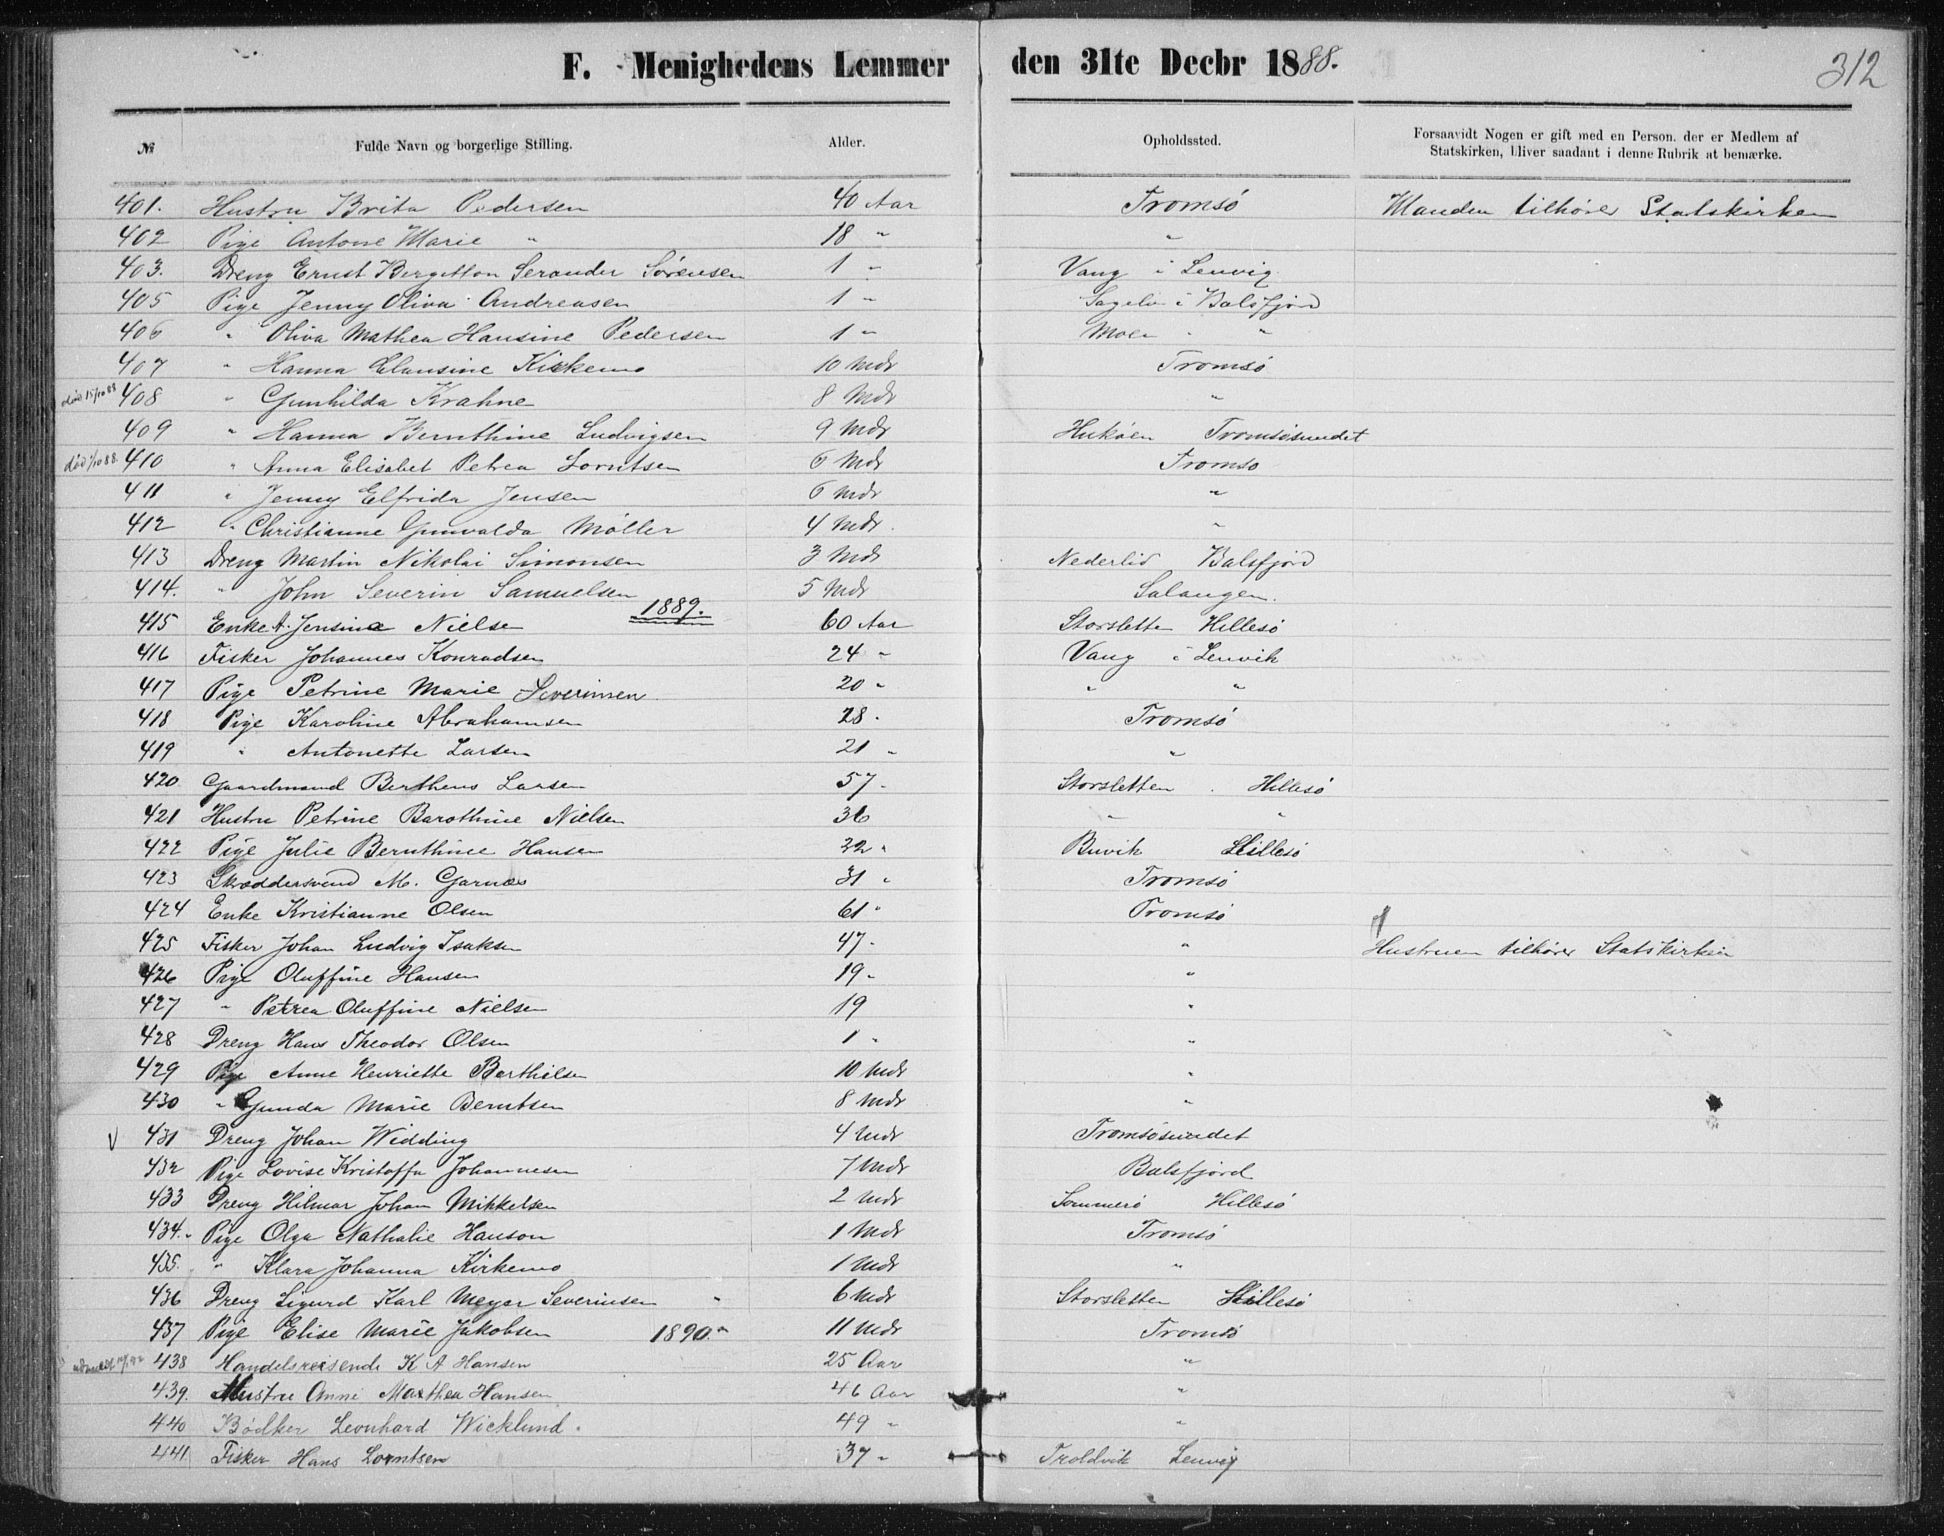 F. Menighedens Lemmer den 31te Decbr 1888. 312
№ Fulde Navn og borgerlige Stilling. Alder. Opholdssted. Forsaavidt Nogen er gift med en Person. der er Medlem af
Statskirken, bliver saadant i denne Rubrik at bemærke.
401. Hustru Brita Pedersen 40 Aar Tromsö Manden tilhører Statskirken
402 Pige Antone Marie " 18 " "
403. Dreng Ernst Bergitton Serander Sørensen 1 " Vang i Lenvig
405 Pige Jenny Oliva Andreasen 1 " Sagelv i Balsfjord
406 " Oliva Mathea Hansine Pedersen 1 " Moen " "
407 " Hanna Clausine Kirkemo 10 Mdr Tromsö
død 15/10 88 408 " Gunhilda Krahne 8 Mdr "
409 " Hanna Bernthine Ludvigsen 9 Mdr Tromsösundet
død 88. 410 " Anna Elisabet Petrea Lorntsen 6 Mdr Tromsö
411 " Jenny Elfrida Jensen 6 Mdr "
412 " Christianne Gunvalda Møller 4 Mdr. "
413 Dreng Martin Nikolai Simonsen 3 Mdr Nederlid Balsfjord
414. " John Severin Samuelsen 5 Mdr Salangen.
1889.
415 Enke A. Jensine Nielse 60 Aar Storslette Hillesö
416 Fisker Johannes Konradsen 24 " Vang i Lenvik
417 Pige Petrine Marie Severinsen 20 " " "
418 Pige Karoline Abrahamsen 28 " Tromsö
419 " Antonette Larsen 21 " "
420 Gaardmand Bertheus Larsen 57 " Storsletten Hillesö
421 Hustru Petrine Barothine Nielsen 36 " "
422 Pige Julie Bernthine Hansen 32 " Buvik Hillesö
423 Skræddersvend M. Garnæs 31 " Tromsö
424 Enke Kristianne Olsen 61 " Tromsö
425 Fisker Johan Ludvig Isaksen 47 " " Hustruen tilhører Statskirken
426 Pige Oluffine Hansen 19 " "
427 " Petrea Oluffine Nielsen 19 "
428 Dreng Hans Theodor Olsen 1 " "
429 Pige Anne Henriette Berthelse 10 Mdr "
430 " Gunda Marie Berntsen 8 Mdr "
V 431 Dreng Johan Widding 4 Mdr Tromsösundet
432 Pige Lovise Kristoffa Johannesen 7 Mdr Balsfjord
433 Dreng Hilmar Johan Mikkelsen 2 Mdr Sommerö Hillesö
434. Pige Olga Nathalie Hanson 1 Mdr Tromsö
435. " Klara Johanna Kirkemo 1 Mdr "
436 Dreng Sigurd Karl Meyer Severinsen " 6 Mdr Storsletten Hillesö
437 Pige Elise Marie Jakobsen 1890 " 11 Mdr Tromsö
438 Handelsreisende K A Hansen 25 Aar "
439. Hustru Anne Marthea Hansen 46 Aar "
440 Bødker Leonhard Wicklund. 49 " "
441 Fisker Hans Lorntsen 37 " Troldvik Lenvig